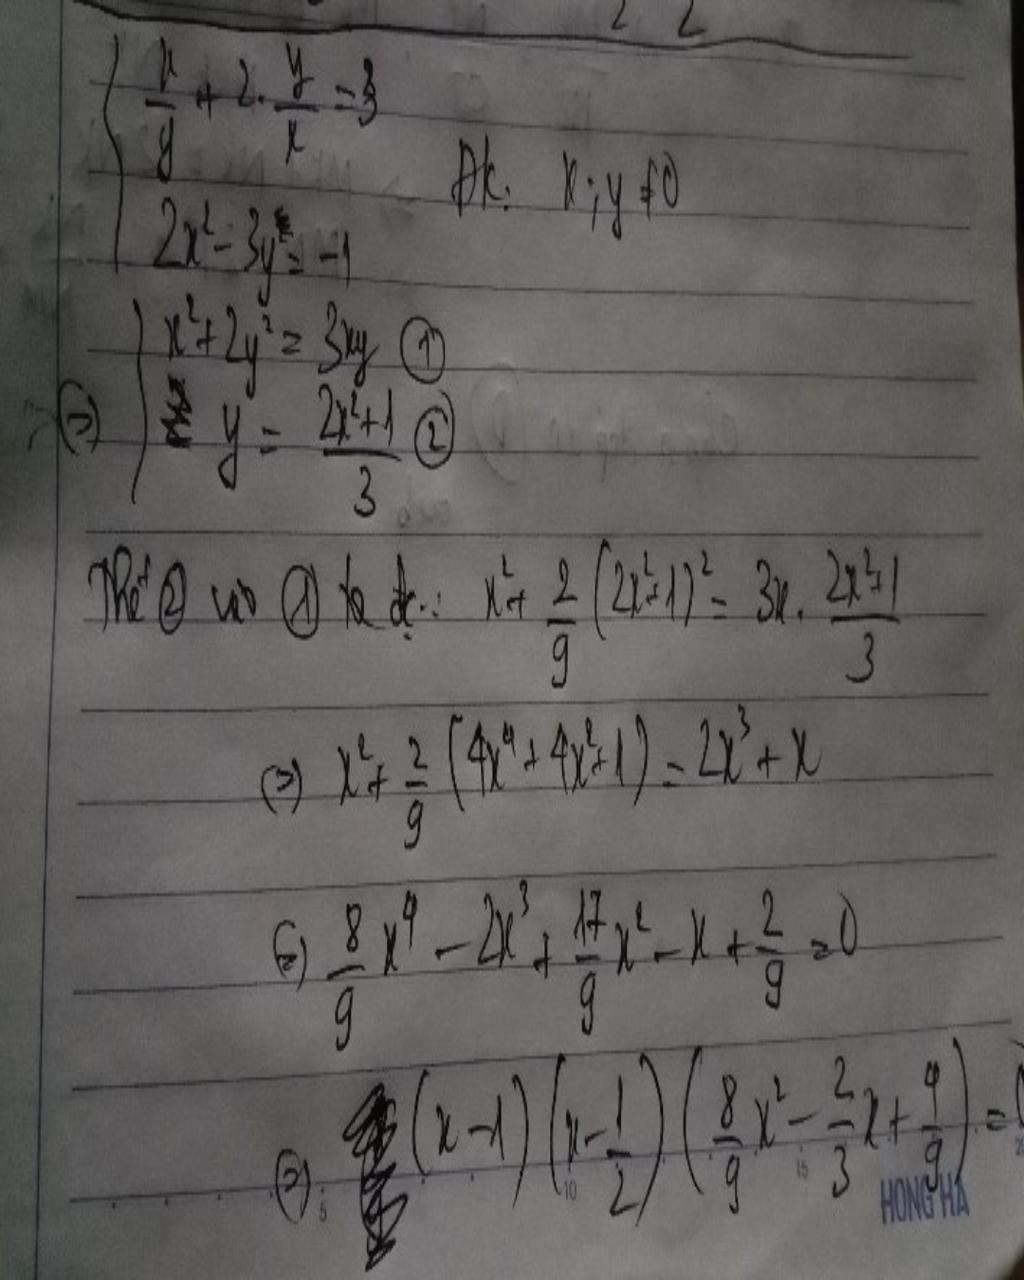 x/y + 2. y/x = 3
Đk: x; y ≠ 0
2x² - 3y = -1
(=) x² + 2y² = 3xy ①
y = (2x²+1)/3 ②
Thế ② vào ① ta đc: x² + 2/9 (2x²+1)² = 3x. (2x²+1)/3
(=) x² + 2/9 (4x⁴ + 4x² + 1) = 2x³ + x
(=) 8/9 x⁴ - 2x³ + 17/9 x² - x + 2/9 = 0
(=) (x-1) (x - 1/2) (8/9 x² - 2/3 x + 4/9) = 0
5 10 15 20
HONG HA